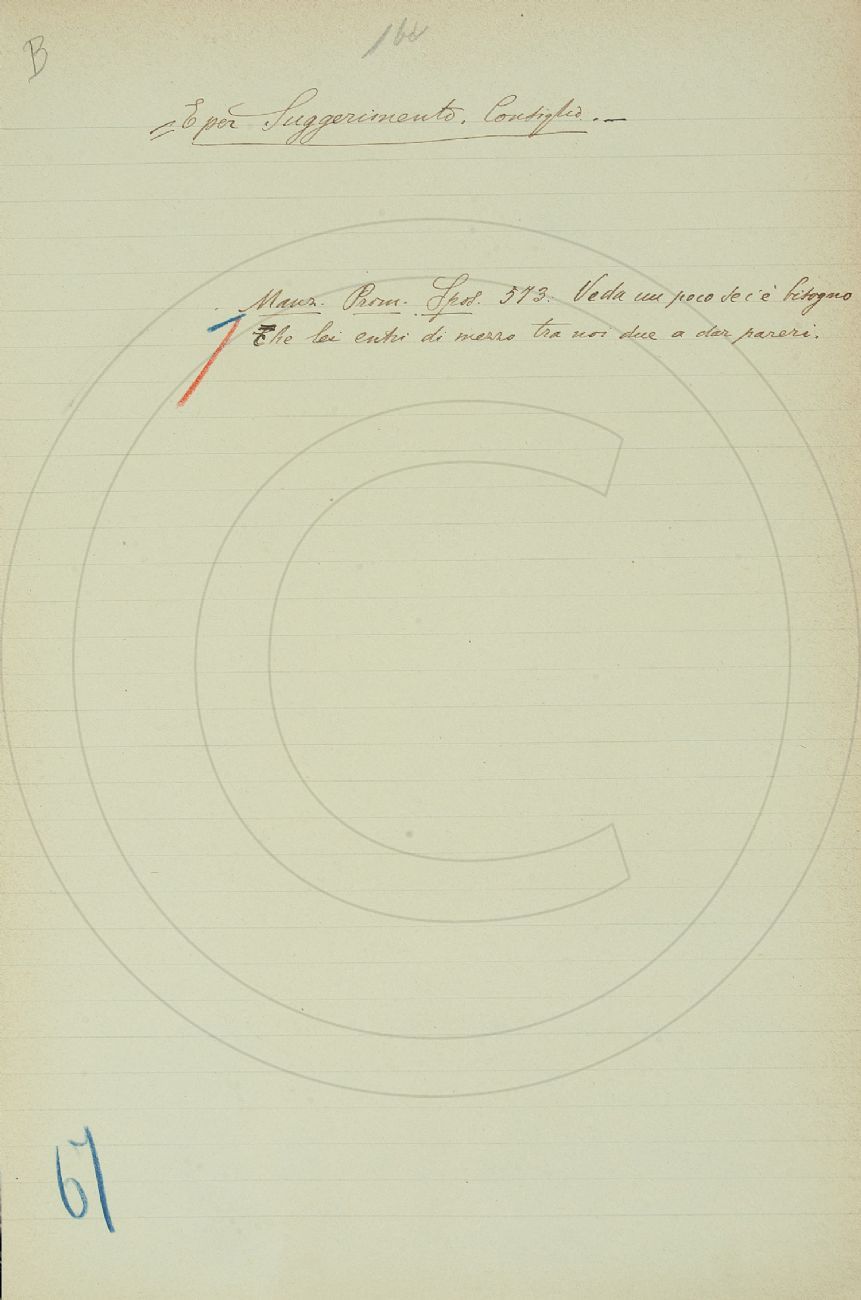 B
= E per Suggerimento. Consiglio. —
Manz. Prom. Spos. 573. Veda un poco se c'è bisogno
che lei entri di mezzo tra noi due a dar pareri.
67